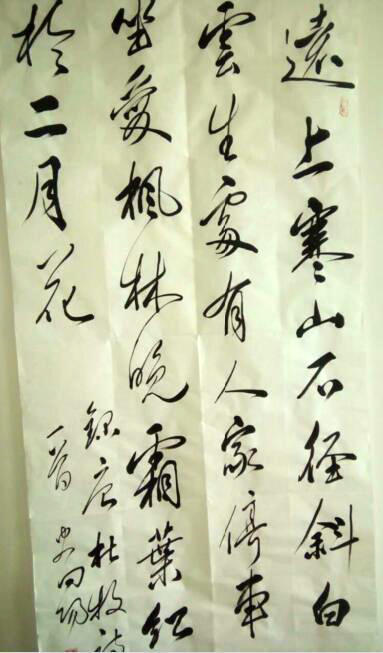 遠上寒山石径斜白
雲生處有人家停車
坐愛楓林晚霜葉紅
於二月花
錄唐杜牧詩
一首